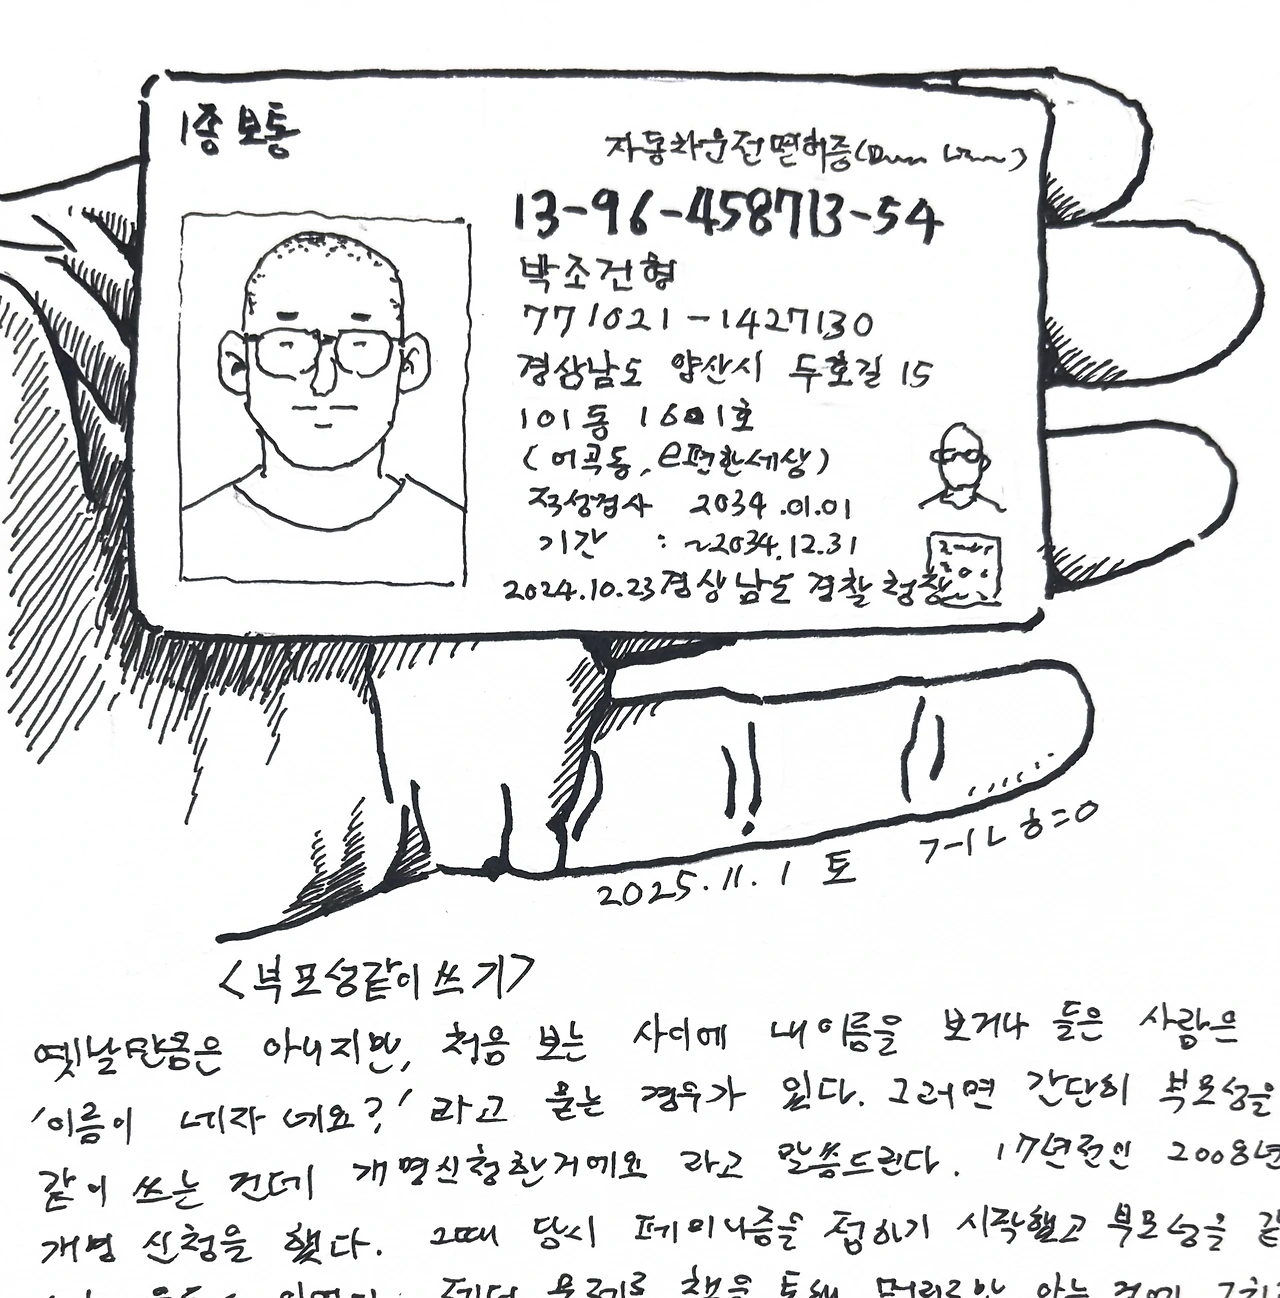 1종 보통
자동차운전면허증(
13-96-458713-54
박조건형
771021-1427130
경상남도 양산시 두호길 15
101동 1601호
(어곡동, e편한세상)
적성검사 2034.01.01
기간 : ~2034.12.31
2024.10.23 경상남도 경찰청장
2025.11.1 토
<부모성같이쓰기>
옛날만큼은 아니지만, 처음 보는 사이에 내이름을 보거나 들은 사람은
'이름이 네자네요?' 라고 묻는 경우가 있다. 그러면 간단히 부모성을
같이 쓰는 건데 개명신청한거에요 라고 말씀드린다. 17년전인 2008년
개명 신청을 했다. 그때 당시 페미니즘을 접하기 시작했고 부모성을 같